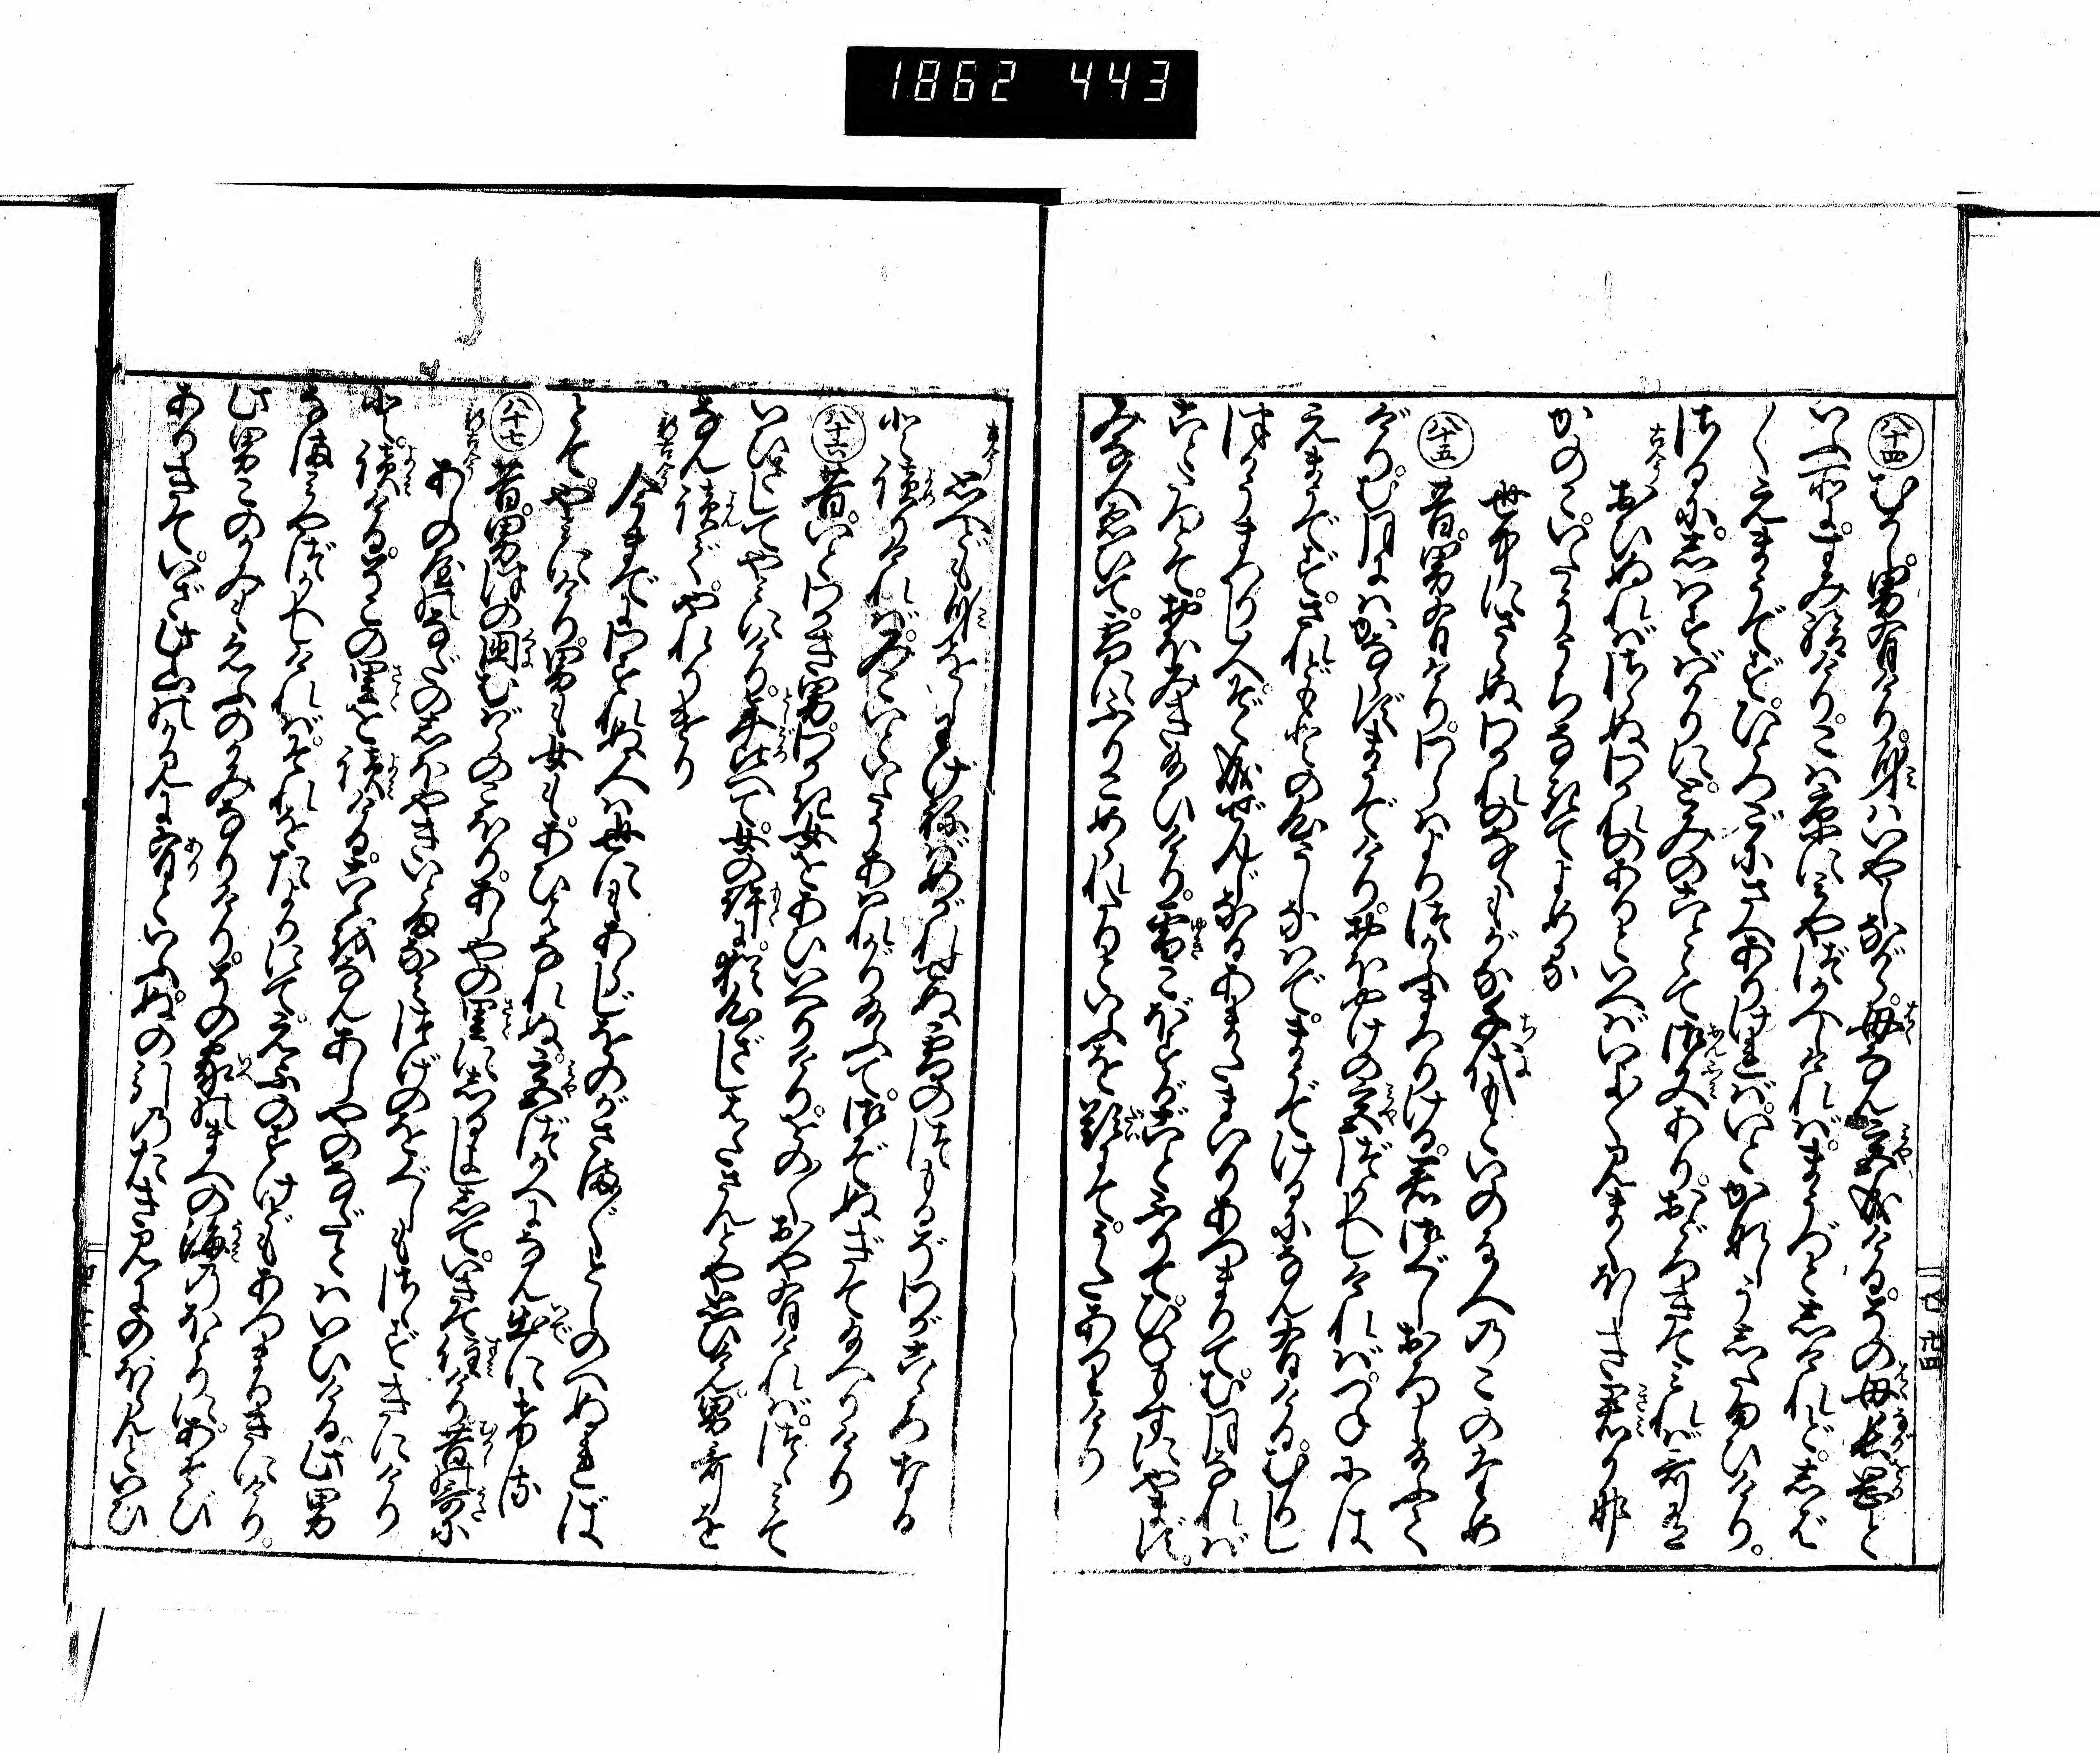 1862 443
八十四 むかし男有けり。身はいやしながら。母なん宮成ける。その母長岡と
いふ所にすみ給けり。こは京に宮づかへしければ。まうづとしけれど。しば
〳〵えまうでず。ひとつごにさへありければ。いとかなしうしたまひけり。
さるに。しはすばかりに。とみのこととて御文あり。おどろきてみれば哥有
古今 老いぬればさらぬわかれのありといへばいよ〳〵見まくほしき君かな
かのこ。いたううちなきてよめる
世中にさらぬわかれのなくもがな千代もといのる人のこのため
八十五 昔。男有けり。わらはよりつかふまつりける君。御ぐしおろし給ふて
けり。む月にはかならずまうでけり。おほやけの宮づかへしければ。つねには
えまうでず。されどもとの心うしなはで。まうでけるになん有ける。むかし
つかうまつりし人。ぞくなる。ぜんじなる。あまたまいりあつまりて。む月なれば
ことたつとて。おほみき給ひけり。雪こぼすがごとふりて。ひねもすにやまず。
みな人ゑひて。雪にふりこめられたりといふを題にて。うたありけり
古今 思へども身をしわけねばめがれせぬ雪のつもるぞわが心なる
と読りければ。みこいといたうあはれがり給ふて。御ぞぬぎて給へりけり
八十六 昔。いとわかき男。わかき女をあひいへりけり。をの〳〵おや有ければ。つゝみて
いひさしてやみにけり。年比へて。女の許に。猶心ざしはたさんとや思ひけん。男哥を
なん読でやれりけり
新古今 今までにわすれぬ人は世にもあらじをのがさま〴〵としのへぬれば
とてやみにけり。男も女も。あひはなれぬ宮づかへになん出にける
八十七 昔。男。つの国むばらのこほり。あしやの里にしるよしして。いきて住けり。昔の哥に
新古今 あしの屋のなだのしほやきいとまなみつげのをぐしもさゝずきにけり
と。読ける。ぞこの里を読ける。こゝをなんあしやのなだとはいひける。此男
なま宮づかへしければ。それをたよりにて。ゑふのすけどもあつまりきにけり。
此男このかみもゑふのかみなりけり。その家のまへの海のほとりにあそび
ありきて。いざ此山のかみに有といふ。ぬの引のたき見にのぼらんといひ